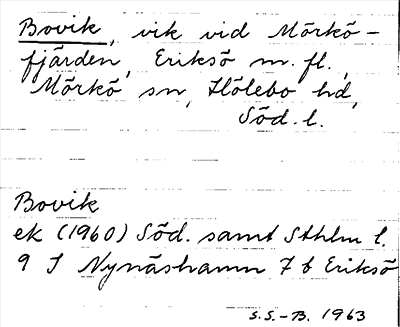 Bovik, vik vid Mörkö-
fjärden, Eriksö m. fl.,
Mörkö sn, Hölebo hd,
Söd. l.
Bovik
ek (1960) Söd. samt Sthlm l.
9 I Nynäshamn 7 b Eriksö
S.S.-B. 1963